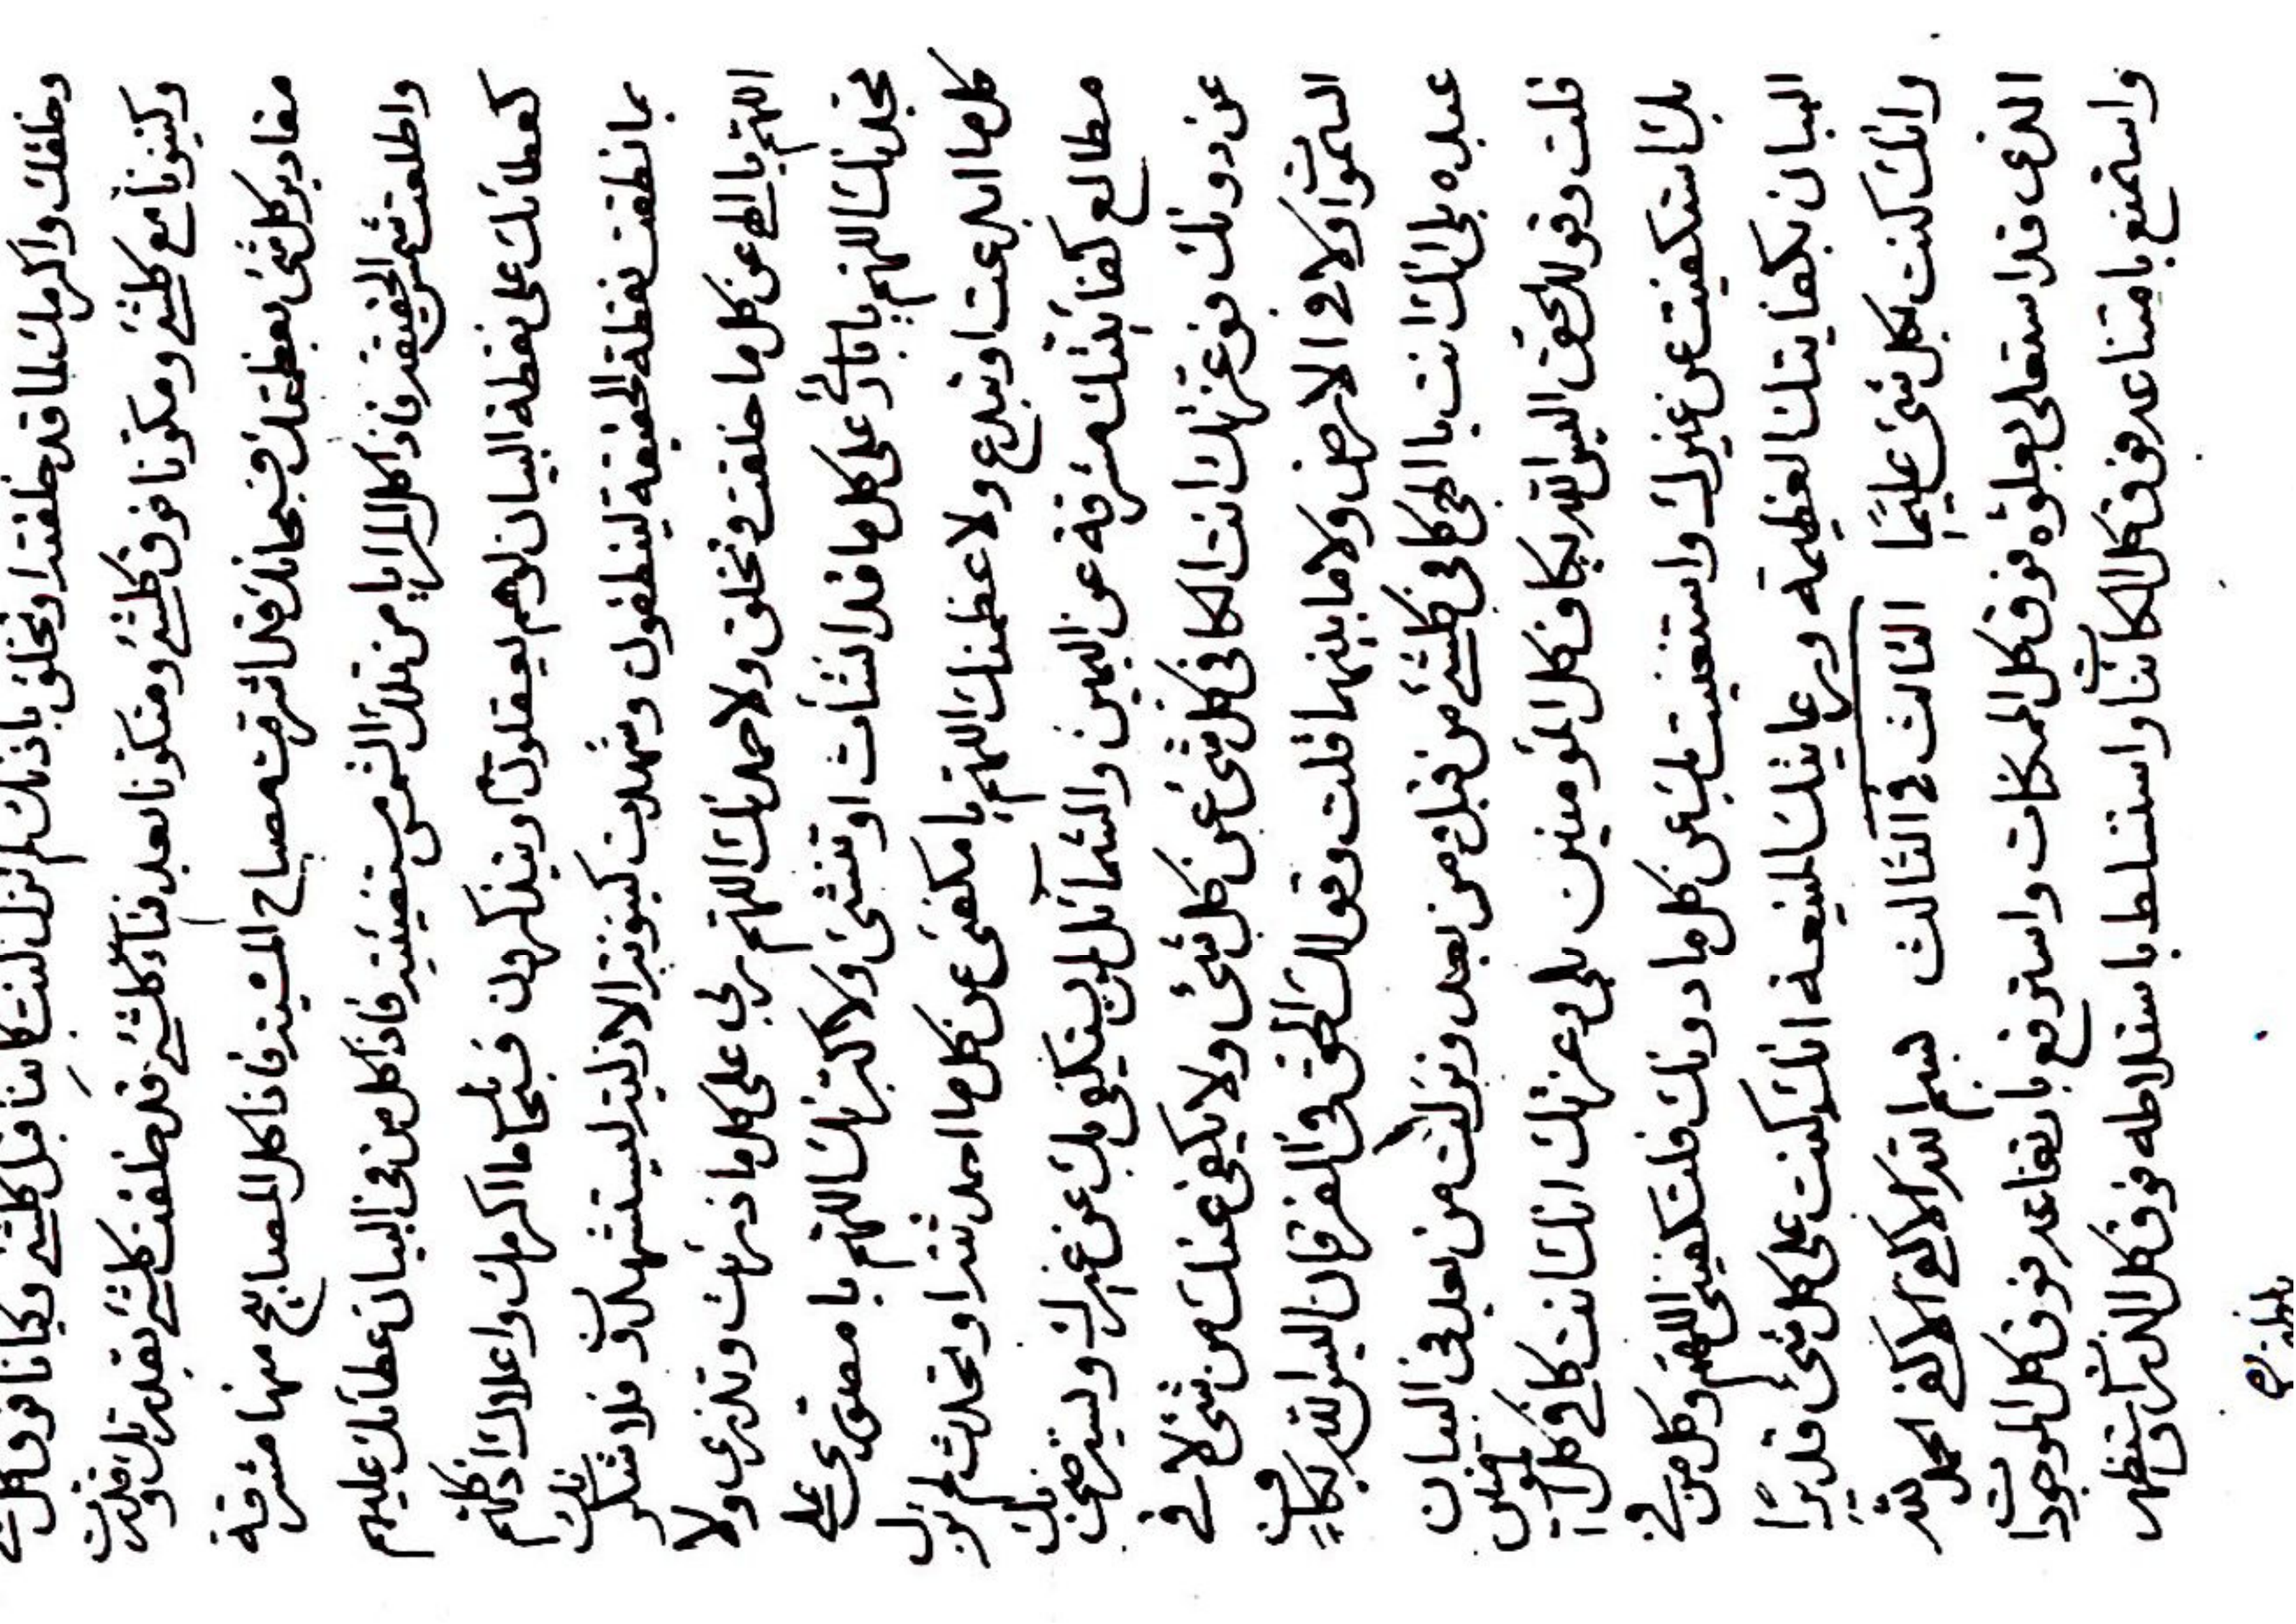 وخلقك واكرمك بما قد خلقت او تخلق باذنك لم تزل كنت كائنا قبل كلشئ وكيانا فوق كل
وكينونا مع كلشئ ومكونا فوق كلشئ ومتكونا بعد فناء كلشئ قد خلقت كلشئ بقدرتك وقدرت
مقادير كل شئ بعظمتك فسبحانك قد اشرقت مصباح المشية فاذا كل المصابيح منها مشرقة
واطلعت شمس الحقيقة فاذا كل المرايا من تلك الشمس مستضيئة فاذا كل من في البيان عطائك عليهم
كعطائك على نقطة البيان لو هم يعقلون او يتذكرون فسبحانك ما اكرمك واعلاك اذ كلهم
بما نطقت نقطة الحقيقة لينطقون وشهدت كينونية الازلية ليستشهدون فلا شكر
اللهم يا الهي عن كل ما خلقت وتخلق ولا حمدنك اللهم ربي على كل ما ذرئت وتذرء ولا
مجدنك اللهم يا بارئ على كل ما قد انشأت او تنشئ ولا كبرنك اللهم يا مقوي على
كل ما ابدعت او تبدع ولا عظمنك اللهم يا مكفى عن كل ما احدثت او تحدث لم تزل
مطالع كفائيتك مشرقة عن اليمين والشمائل لمن يستكفى بك عن غيرك وليسترضين بك
عن دونك فوعزتك انت الكافى كل شئ عن كل شئ ولا يكفى عنك من شئ لا في
السموات ولا في الارض ولا ما بينهما قلت وقولك الحق في الفرقان اليس الله بكاف
عبده بلى انك انت يا الهي كافي كلشئ من قبل ومن بعد ونزلت من بعد في البيان
قلت وقولك الحق اليس الله بكاف كل المؤمنين بلى وعزتك انك انت كافي كل المؤمنين
بك استكفيت عن غيرك واستغنيت بك عن كل ما دونك فلتكفيني اللهم وكل من في
البيان بكفايتك العظيمة ورعايتك المنيعة انك كنت على كل شئ قديرا
وانك كنت بكل شئ عليما الثالث في الثالث بسم الله الاكفى الاكفى الحمد لله
الذي قد استعلى بعلوه فوق كل الممكنات واسترفع بارتفاعه فوق كل الموجودات
واستمنع بامتناعه فوق كل الكائنات واستسلط باستلاطه فوق كل الذرات واستظهر